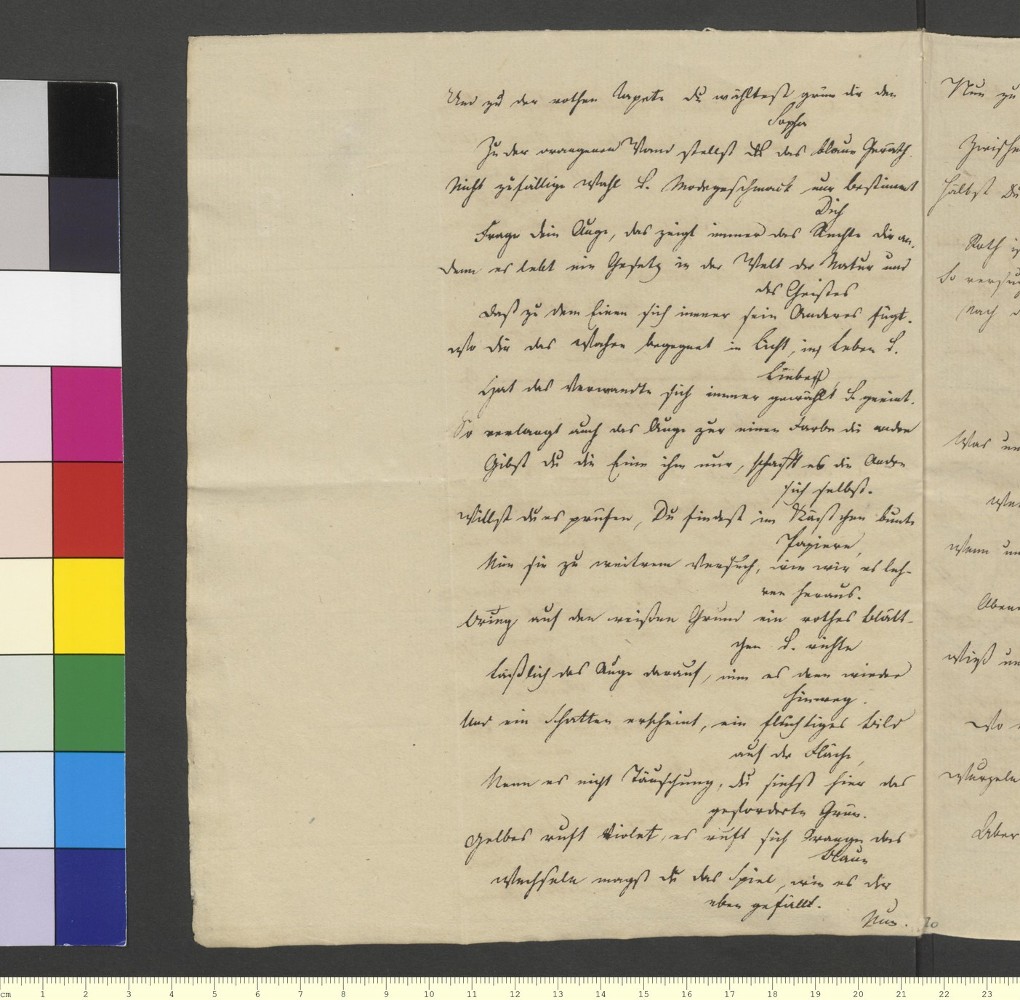 Und zu der rothen Tapete du wähltest grün dir den
Sopha
Zu der orangenen Wand stellst du das blaue Geräth.
Nicht zufällige Wahl u. Modegeschmack nur bestimmt
Dich
Frage dein Auge, das zeigt immer das Rechte dir an.
Denn es lebt ein Gesetz in der Welt der Natur und
des Geistes
Daß zu dem Einen sich immer sein Anderes fügt.
Wo dir das Wahre begegnet in Licht, in Leben u.
Liebe
Hat das Verwandte sich immer gewählt u. geeint.
So verlangt auch das Auge zur einen Farbe die andre
Gibst du die Eine ihm nur, schafft es die Andre
sich selbst.
Willst du es prüfen, Du findest im Kästchen bunte
Papiere,
Nim sie zu weitrem Versuch, wie wir es leh-
ren heraus.
Bring auf den weißen Grund ein rothes Blätt-
chen u. richte
das Auge darauf, nim es dann wieder
hinweg.
Und ein Schatten erscheint, ein flüchtiges Bild
auf der Fläche,
Nenn es nicht Täuschung, du siehst hier das
geforderte Grün.
Gelbes ruft Violet, es ruft sich Orange das
Blaue
Wechseln magst du das Spiel, wie es dir
eben gefällt.
Nun.
Nun zu
Zwische
Hältst Du
Roth
So versu
Nach
Was
Wenn
Aben
Wo
Wurzeln
Aber